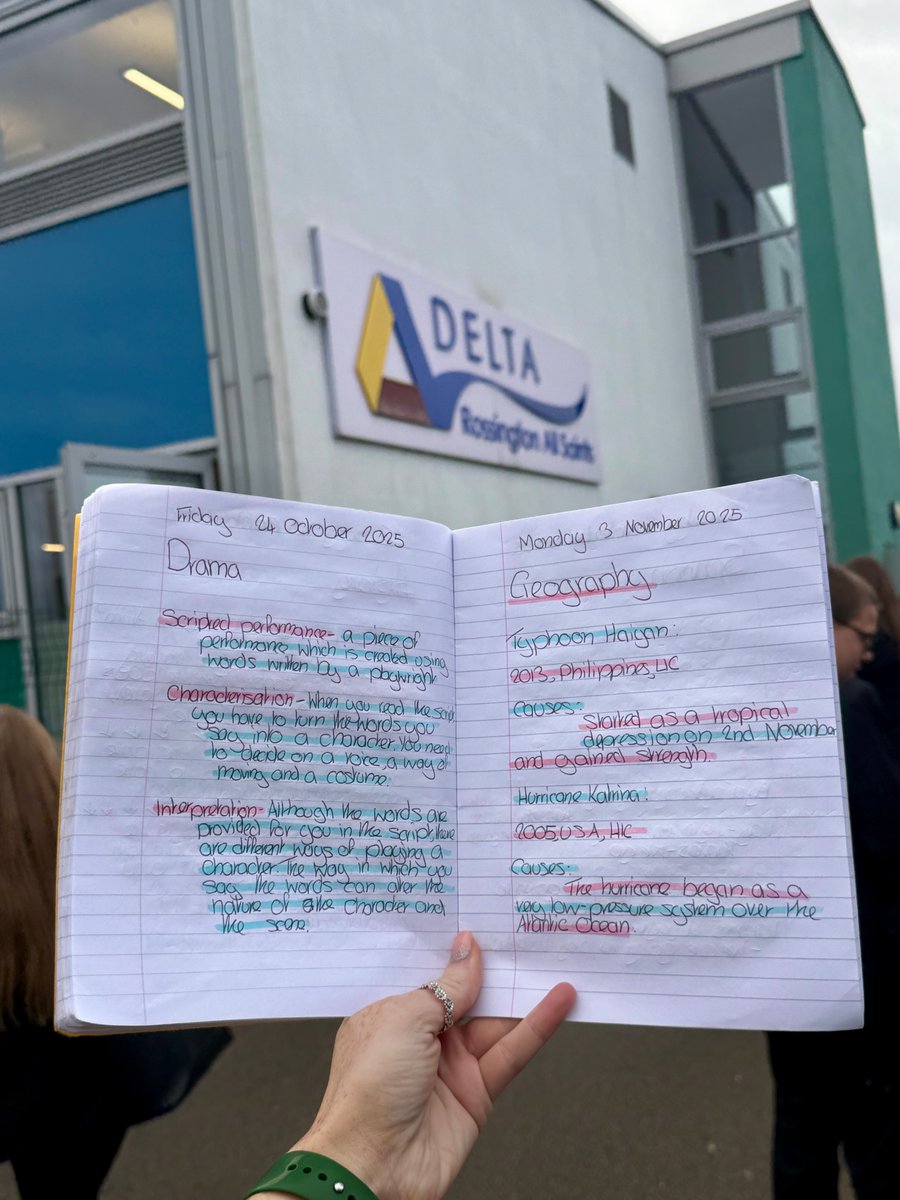 DELTA
Rossington All Saints
Friday 24 October 2025
Drama
Scripted performance - a piece of
performance which is created using
words written by a playwright
Characterisation - When you read the script
you have to turn the words you
say into a character. You need
to decide on a voice, a way of
moving and a costume.
Interpretation - Although the words are
provided for you in the script, there
are different ways of playing a
character. The way in which you
say the words can alter the
nature of the character and
the scene.
Monday 3 November 2025
Geography
Typhoon Haiyan:
2013, Philippines, LIC
Causes:
Started as a tropical
depression on 2nd November
and gained strength.
Hurricane Katrina:
2005, USA, HIC
Causes:
The hurricane began as a
very low-pressure system over the
Atlantic Ocean.